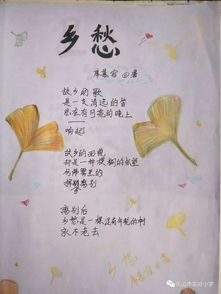 乡愁
席慕容
故乡的歌
是一支清远的笛
总在有月亮的晚上
响起
故乡的面貌
却是一种模糊的怅望
仿佛雾里的
挥手别离
离别后
乡愁是一棵没有年轮的树
永不老去
乡愁